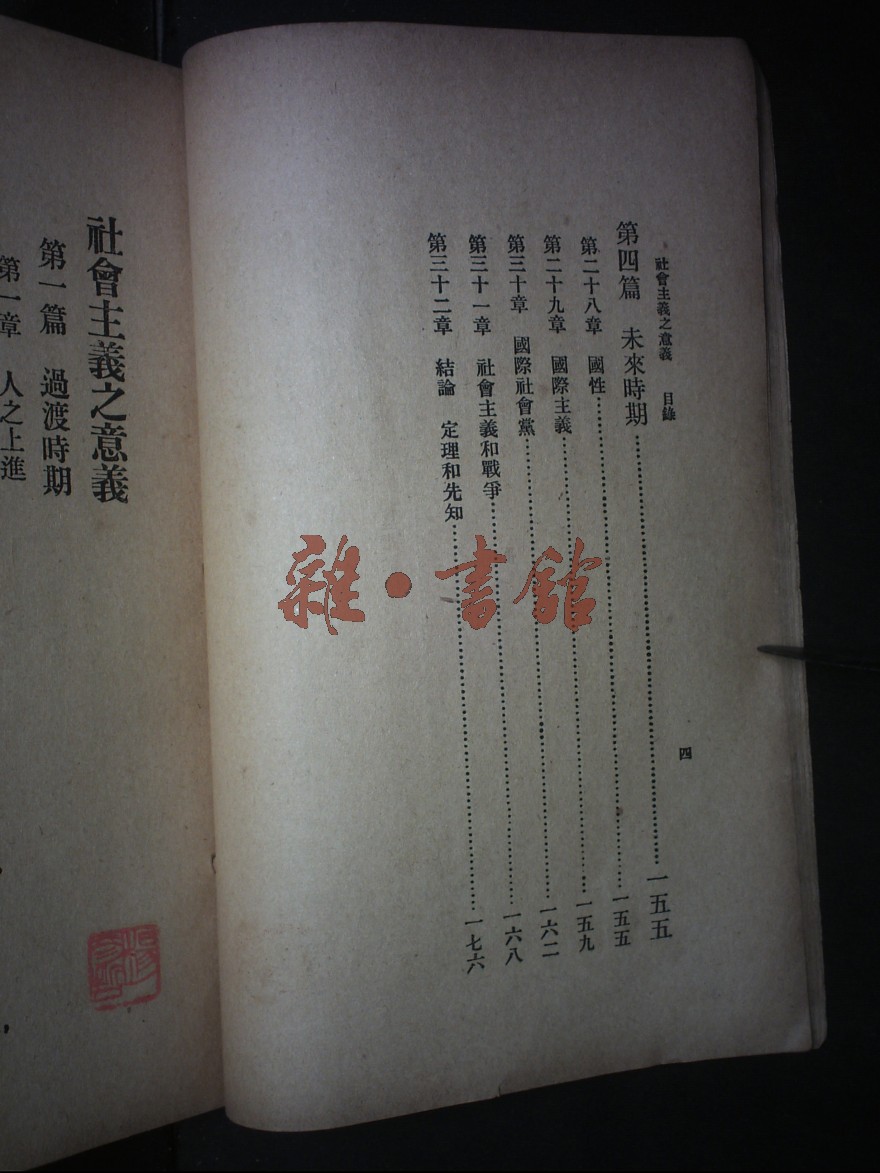 社會主義之意義 目錄
四
第四篇 未來時期…………一五五
第二十八章 國性…………一五五
第二十九章 國際主義…………一五九
第三十章 國際社會黨…………一六二
第三十一章 社會主義和戰爭…………一六八
第三十二章 結論 定理和先知…………一七六
社會主義之意義
第一篇 過渡時期
第一章 人之上進
雜·書館